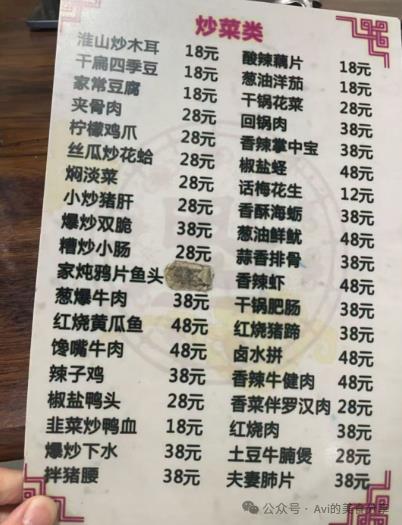 炒菜类
淮山炒木耳 18元
干扁四季豆 18元
家常豆腐 18元
夹骨肉 28元
柠檬鸡爪 28元
丝瓜炒花蛤 28元
焖淡菜 28元
小炒猪肝 28元
爆炒双脆 38元
糟炒小肠 28元
家炖鸦片鱼头
葱爆牛肉 38元
红烧黄瓜鱼 48元
馋嘴牛肉 48元
辣子鸡 38元
椒盐鸭头 28元
韭菜炒鸭血 18元
爆炒下水 38元
拌猪腰 38元
酸辣藕片 18元
葱油洋茄 18元
干锅花菜 28元
回锅肉 38元
香辣掌中宝 38元
椒盐蛏 48元
话梅花生 12元
香酥海蛎 38元
葱油鲜鱿 48元
蒜香排骨 38元
香辣虾 48元
干锅肥肠 38元
红烧猪蹄 38元
卤水拼 48元
香辣牛健肉 48元
香菜伴罗汉肉 28元
红烧肉 38元
土豆牛腩煲 28元
夫妻肺片 38元
公众号 · Avi的美